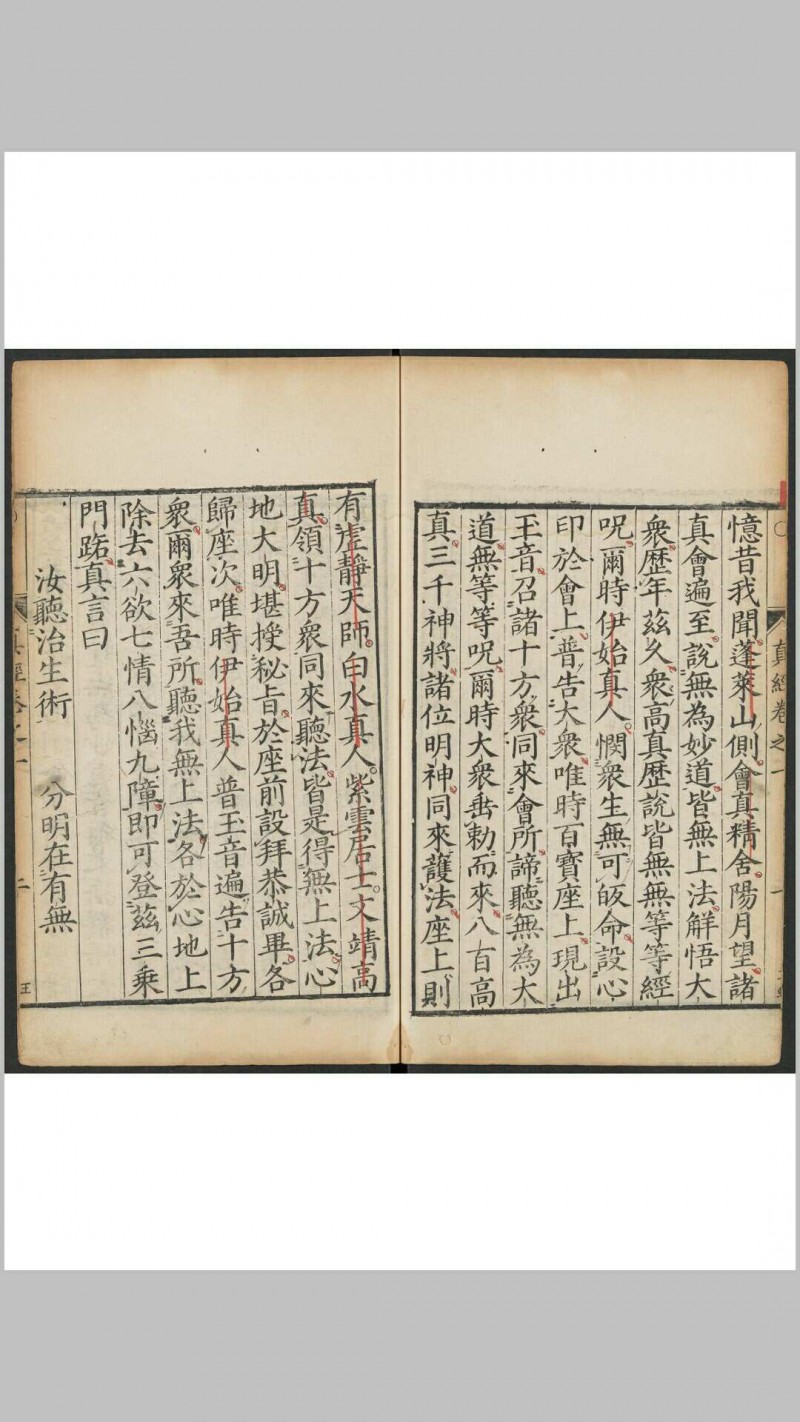 憶昔我聞蓬萊山側會真精舍陽月望諸
真會遍至說無為妙道皆無上法解悟大
衆歷年茲久衆高真歷說皆無無等等經
呪爾時伊始真人憫衆生無可皈命設心
印於會上普告大衆唯時百寶座上現出
玉音召諸十方衆同來會所諦聽無為大
道無等等呪爾時大衆垂勅而來八百高
真三千神將諸位明神同來護法座上則
真經卷之一
有虛靜天師白水真人紫雲居士文靖高
真領十方衆同來聽法皆是得無上法心
地大明堪授秘旨於座前設拜恭誠畢各
歸座次唯時伊始真人普玉音遍告十方
衆爾衆來吾所聽我無上法各於心地上
除去六欲七情八惱九障即可登茲三乘
門路真言曰
汝聽治生術　分明在有無
真經卷之一　二